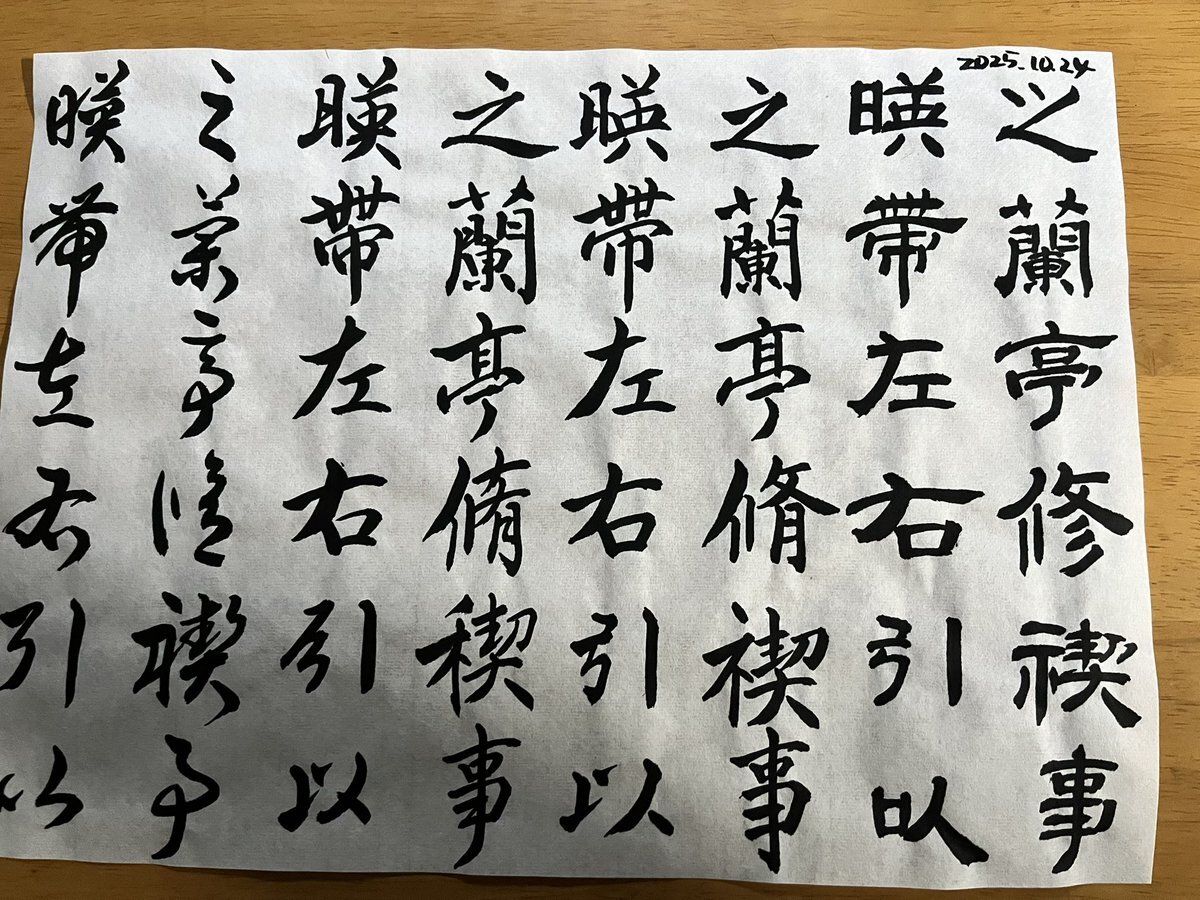 2025.10.24
之蘭亭修禊事
暎帶左右引以
之蘭亭脩禊事
暎帶左右引以
之蘭亭脩稧事
暎帶左右引以
之蘭亭脩禊事
暎帶左右引以